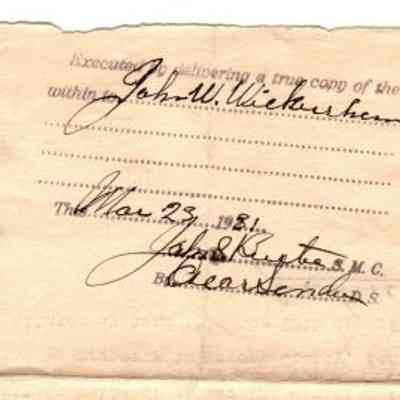 Executed by delivering a true copy of the
within to John W. Wickersham
This Mar 23 1931
John S S. M. C.
By D. S.